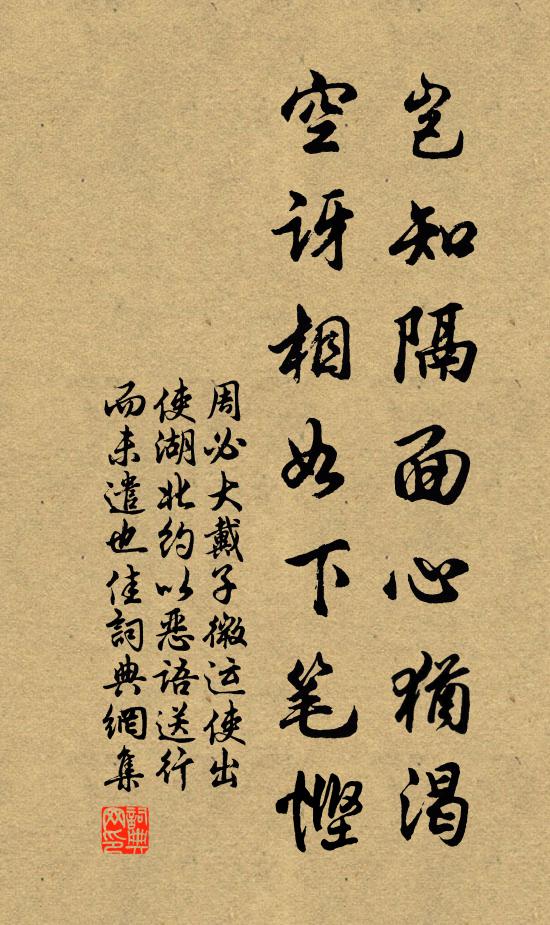 岂知隔面心犹渴
空讶相如下笔悭
周必大戴子微运使出
使湖北约以恶语送行
而未遣也佳詞典網集
詞典網印